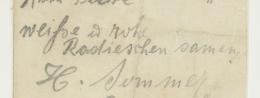 weiße u rote
Radieschen samen
H. Sommer